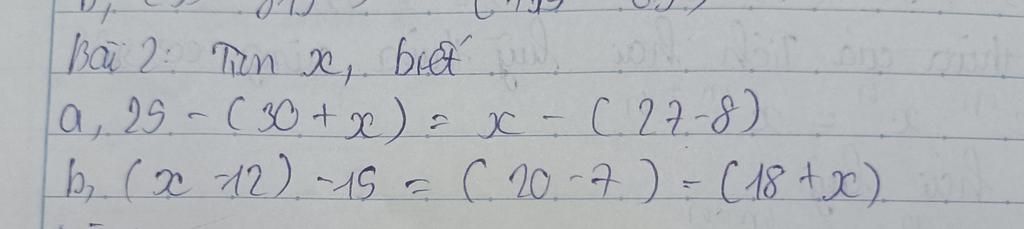 Bài 2: Tìm x, biết
a, 25 - (30 + x) = x - (27 - 8)
b, (x - 12) - 15 = (20 - 7) - (18 + x)